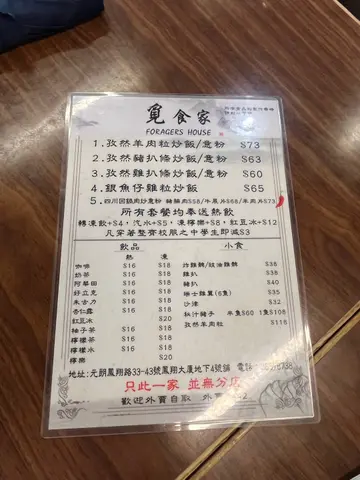 覓食家
FORAGERS HOUSE
1.孜然羊肉粒炒飯/意粉 $73
2.孜然豬扒條炒飯/意粉 $63
3.孜然雞扒條炒飯/意粉 $60
4.銀魚仔雞粒炒飯 $65
5.四川回鍋肉炒意粉 豬腩肉$68/牛展片$68/羊肉片$73
所有套餐均奉送熱飲
轉凍飲+$4,汽水+$5,凍檸樂+$8,紅豆冰+$12
凡穿著整齊校服之中學生即減$3
飲品 小食
熱 凍
咖啡 $16 $18
奶茶 $16 $18
阿華田 $16 $18
好立克 $16 $18
朱古力 $16 $18
杏仁霜 $16 $18
紅豆冰 $20
柚子茶 $16 $18
檸檬茶 $16 $18
檸檬水 $16 $18
檸樂 $20
炸雞髀/豉油雞髀 $38
雞扒 $38
豬扒 $40
瑞士雞翼(6隻) $35
沙律 $32
秋汁鴿子 半隻$60 1隻$108
孜然羊肉粒 $116
地址:元朗鳳翔路33-43號鳳翔大廈地下4號舖 電話
只此一家 並無分店
歡迎外賣自取